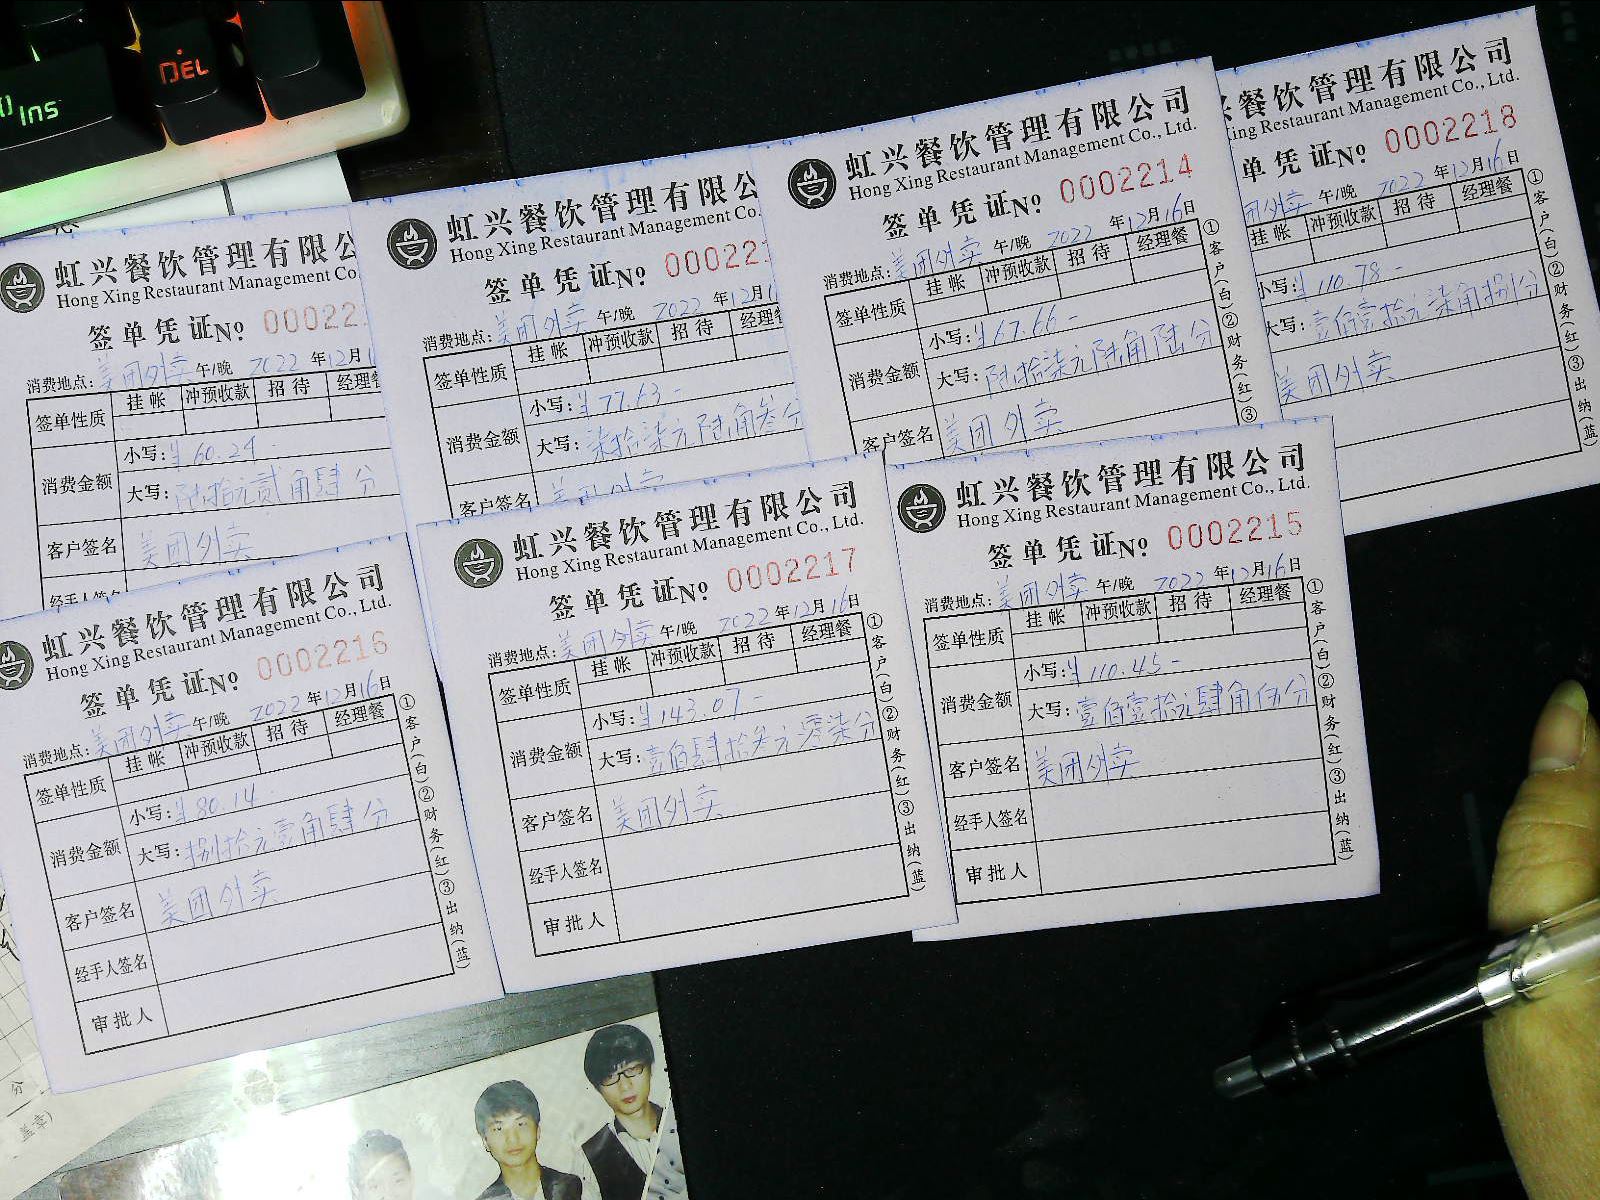 DEL
Ins
虹兴餐饮管理有限公
Hong Xing Restaurant Management Co.
签单凭证No 00022
消费地点:美团外卖 午/晚 2022 年12月1
签单性质 挂帐 冲预收款 招待 经理餐
消费金额 小写:¥60.24-
大写:陆拾元贰角肆分
客户签名 美团外卖
经手人签名
虹兴餐饮管理有限公
Hong Xing Restaurant Management Co.
签单凭证No 000221
消费地点:美团外卖 午/晚 2022 年12月1
签单性质 挂帐 冲预收款 招待 经理餐
消费金额 小写:¥77.63-
大写:柒拾柒元陆角叁分
客户签名 美团外卖
虹兴餐饮管理有限公司
Hong Xing Restaurant Management Co., Ltd.
签单凭证No 0002214
消费地点:美团外卖 午/晚 2022 年12月16日
签单性质 挂帐 冲预收款 招待 经理餐
消费金额 小写:¥67.66-
大写:陆拾柒元陆角陆分
客户签名 美团外卖
①客户(白)②财务(红)③
餐饮管理有限公司
ing Restaurant Management Co., Ltd.
单凭证No 0002218
团外卖 2022 年12月16日
挂帐 冲预收款 招待 经理餐
小写:¥110.78-
大写:壹佰壹拾元柒角捌分
美团外卖
①客户(白)②财务(红)③出纳(蓝)
虹兴餐饮管理有限公司
Hong Xing Restaurant Management Co., Ltd.
签单凭证No 0002216
消费地点:美团外卖 午/晚 2022 年12月16日
签单性质 挂帐 冲预收款 招待 经理餐
消费金额 小写:¥80.14-
大写:捌拾元壹角肆分
客户签名 美团外卖
经手人签名
审批人
①客户(白)②财务(红)③出纳(蓝)
虹兴餐饮管理有限公司
Hong Xing Restaurant Management Co., Ltd.
签单凭证No 0002217
消费地点:美团外卖 午/晚 2022 年12月16日
签单性质 挂帐 冲预收款 招待 经理餐
消费金额 小写:¥143.07-
大写:壹佰肆拾叁元零柒分
客户签名 美团外卖
经手人签名
审批人
①客户(白)②财务(红)③出纳(蓝)
虹兴餐饮管理有限公司
Hong Xing Restaurant Management Co., Ltd.
签单凭证No 0002215
消费地点:美团外卖 午/晚 2022 年12月16日
签单性质 挂帐 冲预收款 招待 经理餐
消费金额 小写:¥110.45-
大写:壹佰壹拾元肆角伍分
客户签名 美团外卖
经手人签名
审批人
①客户(白)②财务(红)③出纳(蓝)
分
盖章)